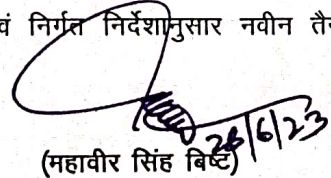 वं निर्गत निर्देशानुसार नवीन तै
26/6/23
(महावीर सिंह बिष्ट)